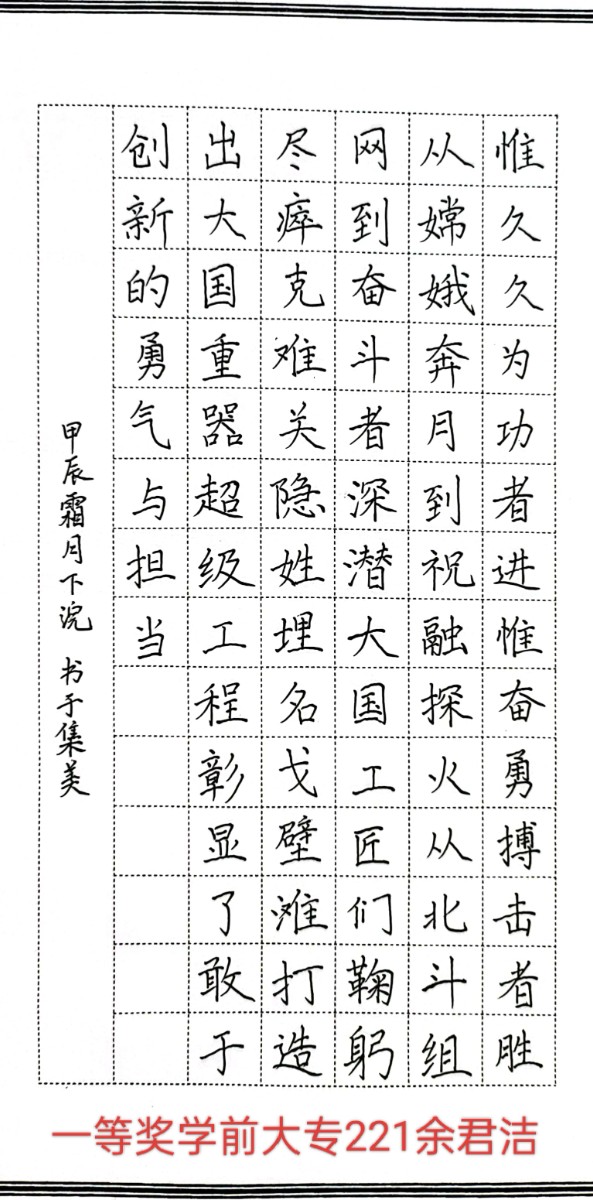 惟久久为功者进惟奋勇搏击者胜
从嫦娥奔月到祝融探火从北斗组
网到奋斗者深潜大国工匠们鞠躬
尽瘁克难关隐姓埋名戈壁滩打造
出大国重器超级工程彰显了敢于
创新的勇气与担当
甲辰霜月下浣 书于集美
一等奖学前大专221余君洁